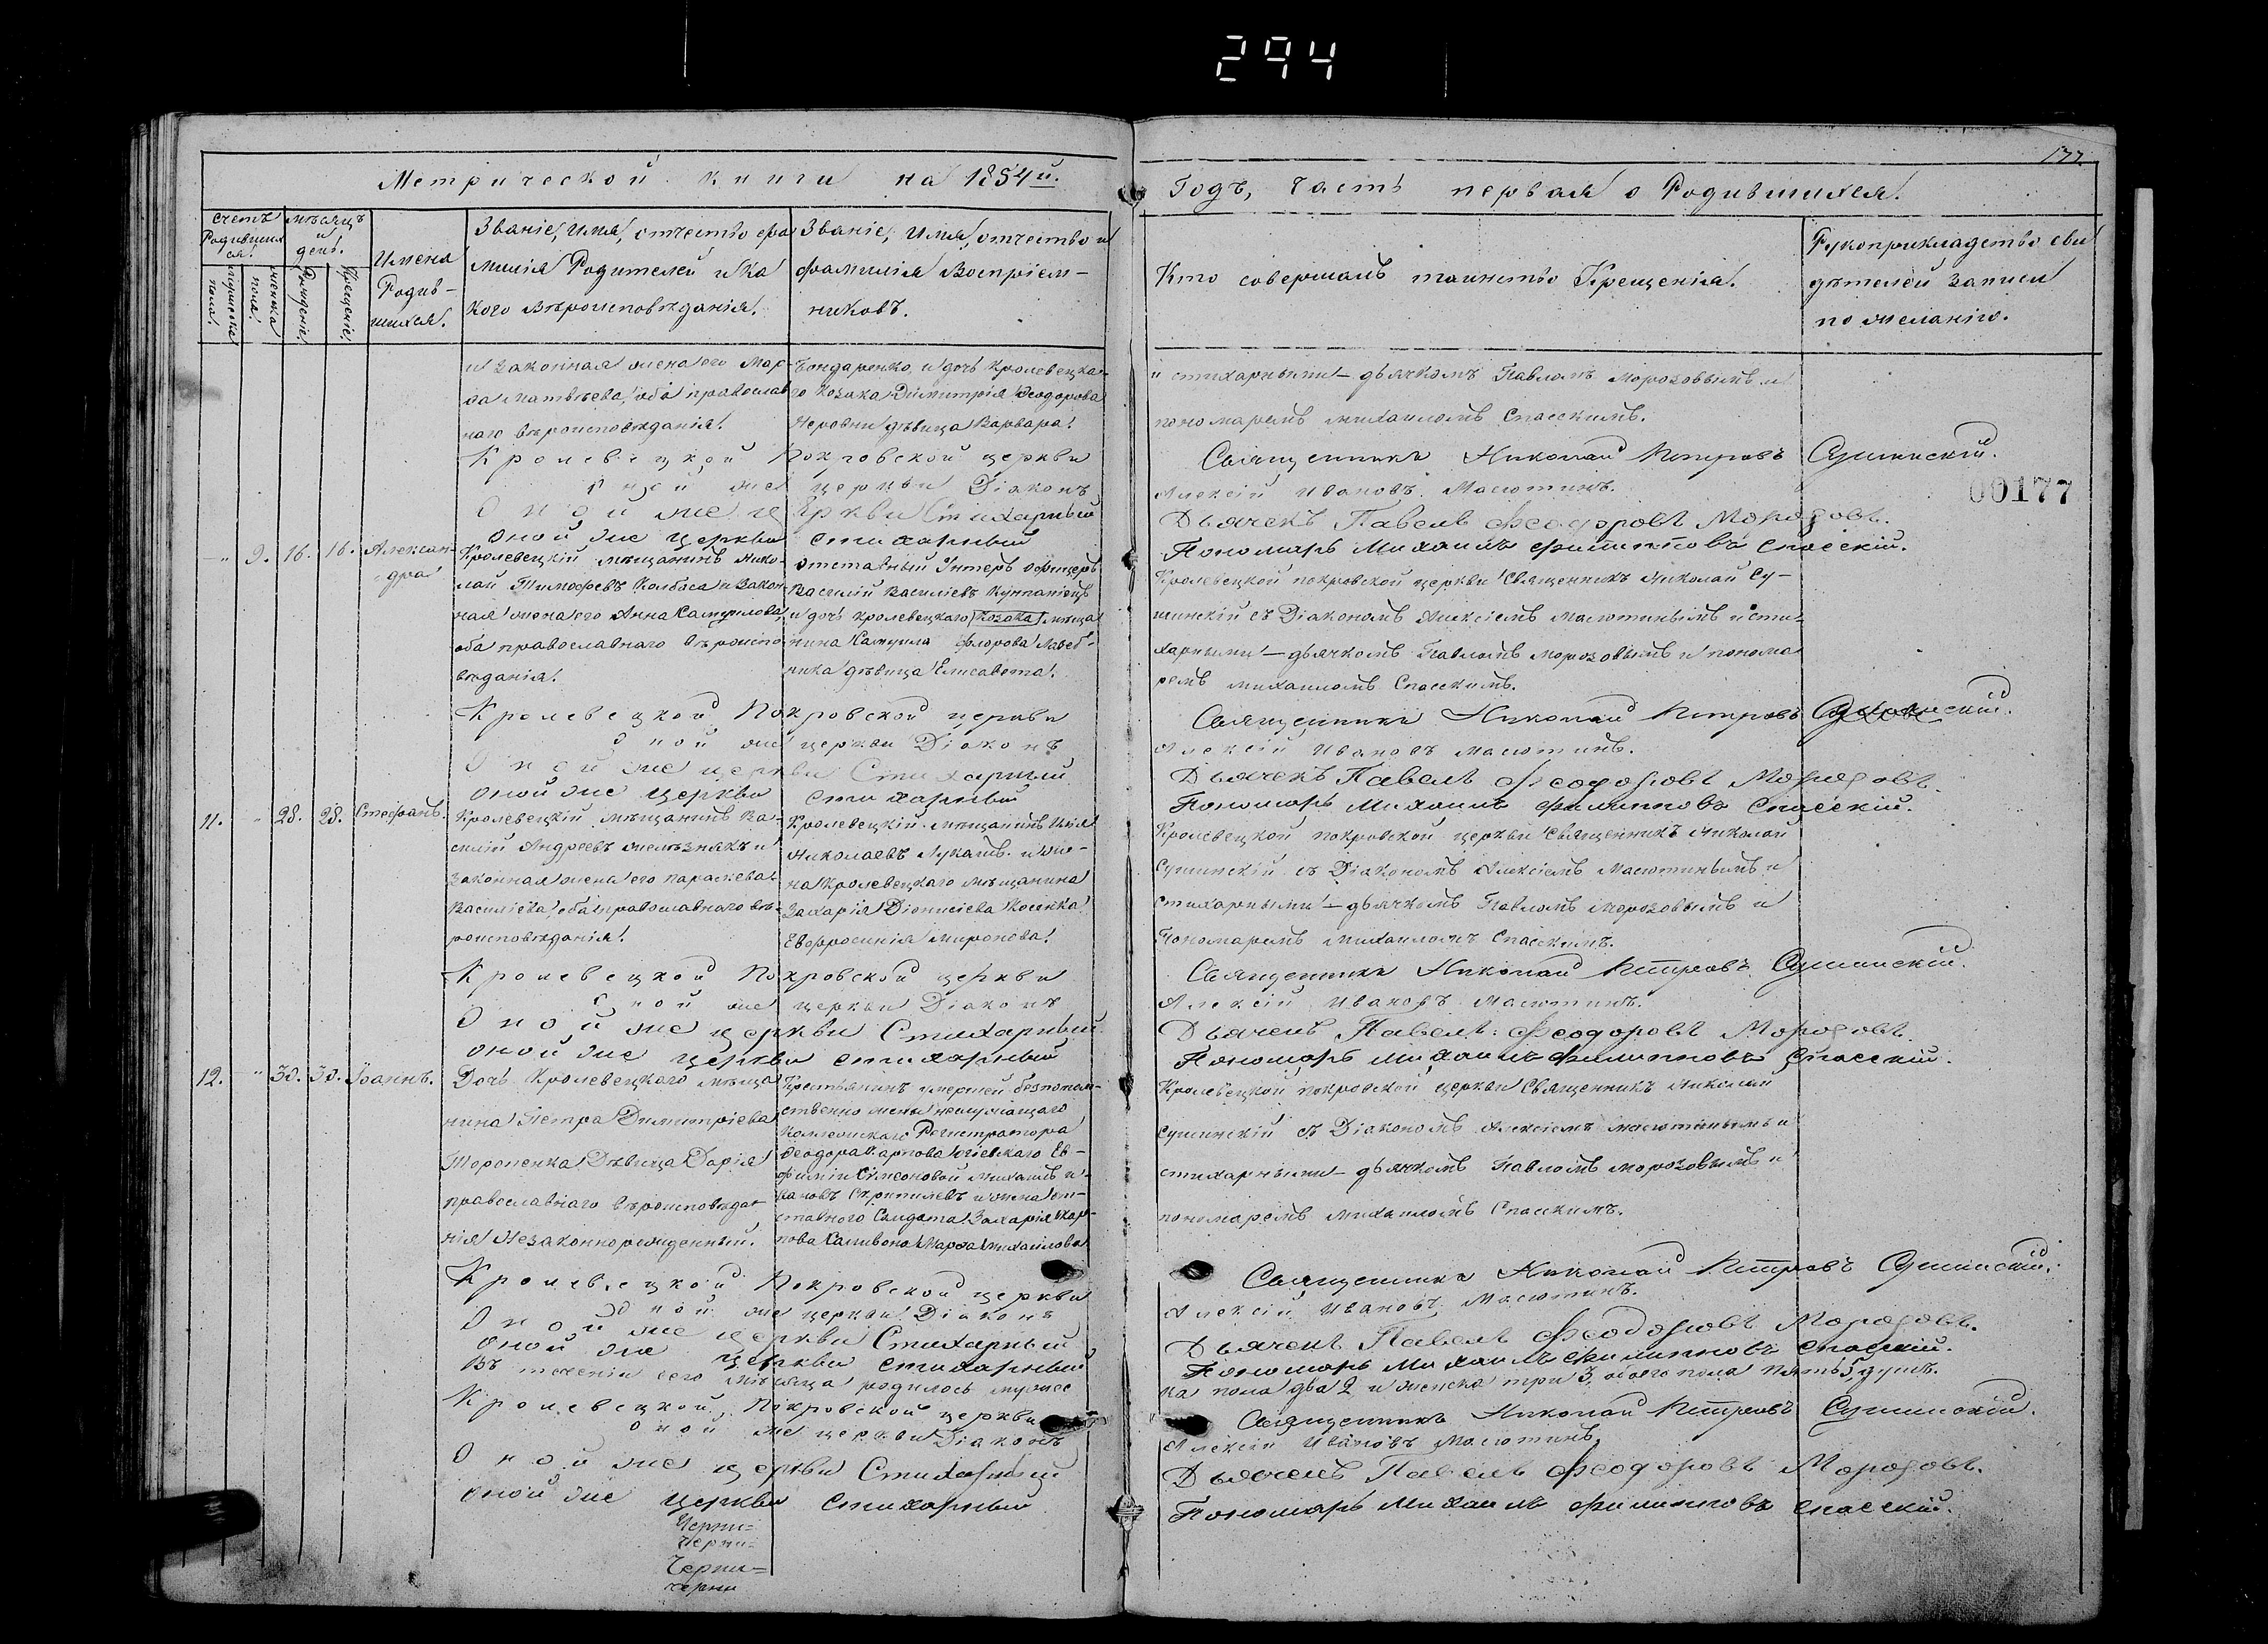 294
177
Метрической книги на 1854й.
Годъ, часть первая о Родившихся.
счетъ Родившихся.
мѣсяцъ и день.
Имена Родив-
шихся.
мужеска пола.
женска пола.
Рожденіе.
Крещеніе.
Званіе, Имя, отчество и фа
милія Родителей и ка
кого вѣроисповѣданія.
Званіе, Имя, отчество и
фамилія Воспріем-
никовъ.
Кто совершалъ таинство Крещенія.
Рукоприкладство сви
дѣтелей записи
по желанію.
и законная жена его Мар-
ѳа Матвѣева, оба православ
наго вѣроисповѣданія.
Бондаренко, и дочь кролевецка-
го козака Димитрія Ѳеодорова
дѣвица Варвара.
и стихарными - дьячкомъ Павломъ Морозовымъ и
пономаремъ Михаиломъ Спасскимъ.
Кролевецкой Покровской церкви Священникъ Николай Петровъ Сушинскій.
Оной же церкви Діаконъ Алексій Ивановъ Масютинъ.
Оной же церкви Стихарный Дьячекъ Павелъ Феодоровъ Морозовъ.
Оной же церкви стихарный Пономарь Михаилъ Филипповъ Спасскій.
00177
" 9. 16. 16. Алексан-
дра
Кролевецкій мѣщанинъ Нико-
лай Тимофѣевъ Колбаса и закон-
ная жена его Анна Самуилова,
оба православнаго вѣроиспо
вѣданія.
отставный Унтеръ офицеръ
Василій Василіевъ
и дочь кролевецкаго козака мѣща
нина Самуила Флорова
дѣвица Елисавета.
Кролевецкой покровской церкви Священникъ Николай Су-
шинскій съ Діакономъ Алексіемъ Масютинымъ и сти-
харными - дьячкомъ Павломъ Морозовымъ и понома
ремъ Михаиломъ Спасскимъ.
Кролевецкой Покровской церкви Священникъ Николай Петровъ Сушинскій.
Оной же церкви Діаконъ Алексій Ивановъ Масютинъ.
Оной же церкви Стихарный Дьячекъ Павелъ Феодоровъ Морозовъ.
Оной же церкви стихарный Пономарь Михаилъ Филипповъ Спасскій.
11. " 28. 28. Стефанъ.
Кролевецкій мѣщанинъ Ва-
силій Андреевъ Желѣзнякъ и
законная жена его Параскева
Василіева, оба православнаго вѣ-
роисповѣданія.
Кролевецкій мѣщанинъ Илія
Николаевъ Лукашъ и же-
на кролевецкаго мѣщанина
Захарія Діонисіева Косенка
Евфросинія Миронова.
Кролевецкой покровской церкви Священникъ Николай
Сушинскій съ Діакономъ Алексіемъ Масютинымъ и
стихарными - дьячкомъ Павломъ Морозовымъ и
Пономаремъ Михаиломъ Спасскимъ.
Кролевецкой Покровской церкви Священникъ Николай Петровъ Сушинскій.
Оной же церкви Діаконъ Алексій Ивановъ Масютинъ.
Оной же церкви Стихарный Дьячекъ Павелъ Феодоровъ Морозовъ.
Оной же церкви стихарный Пономарь Михаилъ Филипповъ Спасскій.
12. " 30. 30. Іоаннъ.
Дочь Кролевецкаго мѣща
нина Петра Димитріева
Тороненка Дѣвица Дарія
православнаго вѣроисповѣда-
нія Незаконнорожденный.
Крестьянинъ умершей
ственно жены
Коллежскаго Регистратора
Ѳеодора Карпова Ев-
фиміи Симеоновой Михаилъ И-
вановъ и жена от-
ставнаго Солдата Захарія Кар-
пова Марѳа Михайлова
Кролевецкой покровской церкви Священникъ Николай
Сушинскій съ Діакономъ Алексіемъ Масютинымъ и
стихарными - дьячкомъ Павломъ Морозовымъ и
пономаремъ Михаиломъ Спасскимъ.
Кролевецкой Покровской церкви Священникъ Николай Петровъ Сушинскій.
Оной же церкви Діаконъ Алексій Ивановъ Масютинъ.
Оной же церкви Стихарный Дьячекъ Павелъ Феодоровъ Морозовъ.
Оной же церкви стихарный Пономарь Михаилъ Филипповъ Спасскій.
Въ теченіи сего мѣсяца родилось мужес ка пола два 2 и женска три 3, обоего пола пять 5, душъ.
Кролевецкой Покровской церкви Священникъ Николай Петровъ Сушинскій.
Оной же церкви Діаконъ Алексій Ивановъ Масютинъ.
Оной же церкви Стихарный Дьячекъ Павелъ Феодоровъ Морозовъ.
Оной же церкви стихарный Пономарь Михаилъ Филипповъ Спасскій.
Черни=
Черни=
Черни=
черни